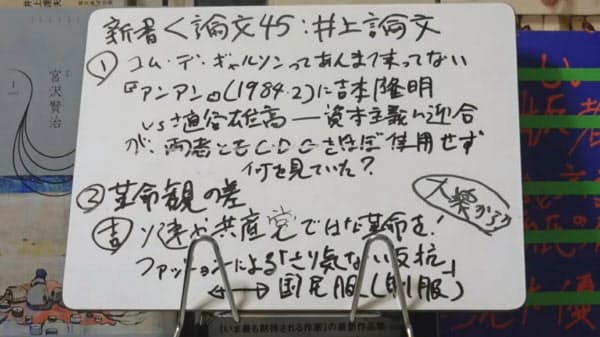 新書く論文45：井上論文
① コム・デ・ギャルソンってあんまて来ってない
『アンアン』(1984.2)に吉本隆明
vs 埴谷雄高 — 資本主義に迎合
が、両者ともC.D.Gをほぼ着用せず
何を見ていた？
② 革命観の差
大衆が
吉 ソ連や共産党ではな革命を！
ファッションによる「さり気ない反抗」
↔ 国民服(制服)
井上
宮沢賢治
1
《いま最も期待される作家》の最新作品集
い
者
紙
の
優